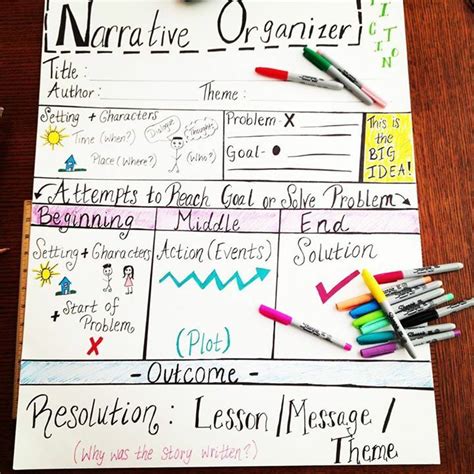 Narrative Organizer
FICTION
Title:
Author: Theme:
Setting + Characters
Time (When?)
Dialogue
Thoughts
Place (Where?)
(Who?)
Problem - X
Goal -
This is
the
BIG
IDEA!
Attempts to Reach Goal or Solve Problem
Beginning Middle End
Setting + Characters
+ Start of
Problem
X
Action (Events)
(Plot)
Solution
- Outcome -
Resolution: Lesson / Message /
Theme
(Why was the story written?)